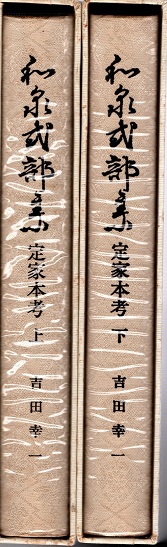 和泉式部集 定家本考 上 吉田幸一
和泉式部集 定家本考 下 吉田幸一